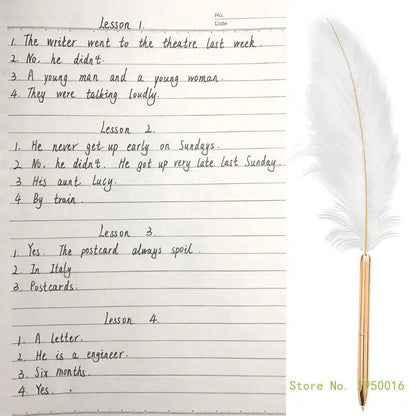 No.
Date
Lesson 1.
1. The writer went to the theatre last week.
2. No, he didn't.
3. A young man and a young woman.
4. They were talking loudly.
Lesson 2.
1. He never get up early on Sundays.
2. No, he didn't. He got up very late last Sunday.
3. His aunt Lucy.
4. By train.
Lesson 3.
1. Yes. The postcard always spoil.
2. In Italy.
3. Postcards.
Lesson 4.
1. A letter.
2. He is a engineer.
3. Six months.
4. Yes.
Store No. 1950016